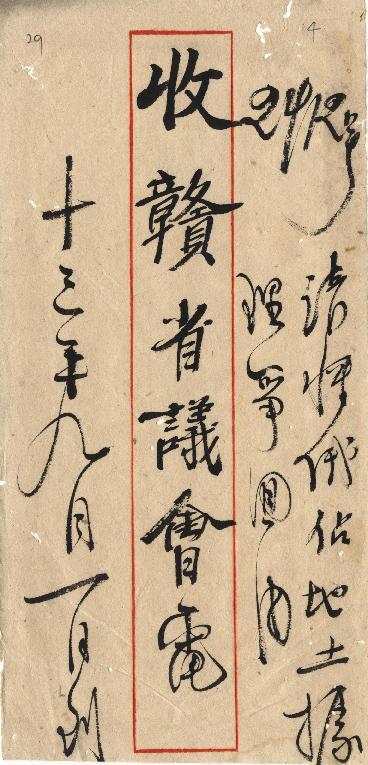 4
請將俄佔地土據
理爭回由
收贛省議會電
十三年九月一日到
29